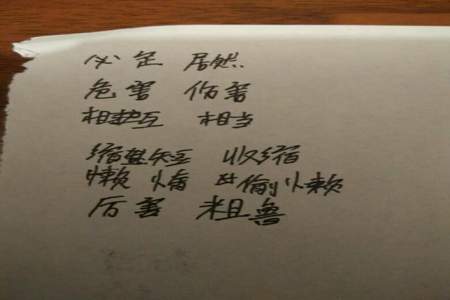 必定 居然
危害 伤害
相互 相当
缩短 收缩
懒惰 偷懒
厉害 粗鲁